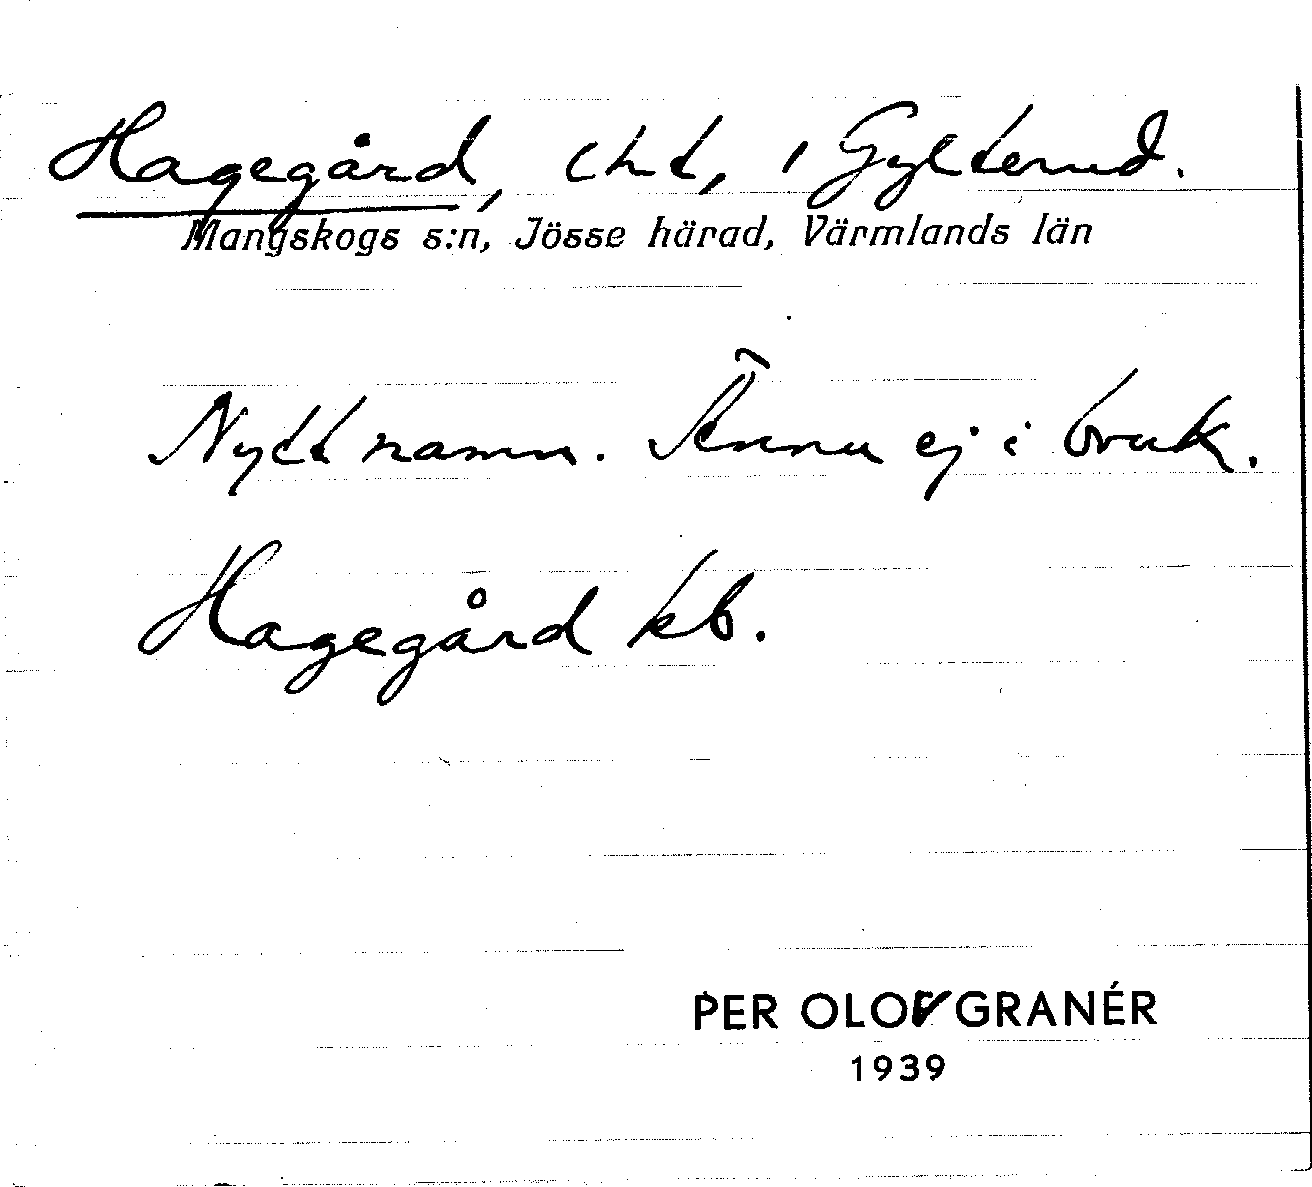 Hagegård, lht, i Gylterud.
Mangskogs s:n, Jösse härad, Värmlands län
Nytt namn. Ännu ej i bruk.
Hagegård kb.
PER OLOV GRANÉR
1939